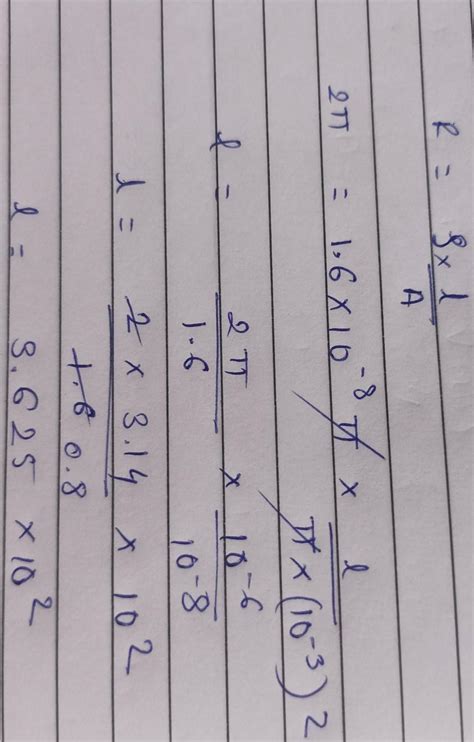 R = ρ × l/A
2π = 1.6 × 10⁻⁸ π × l/(π × (10⁻³)²)
l = 2π/1.6 × 10⁻⁶/10⁻⁸
l = 2 × 3.14/1.6 0.8 × 10²
l = 3.625 × 10²